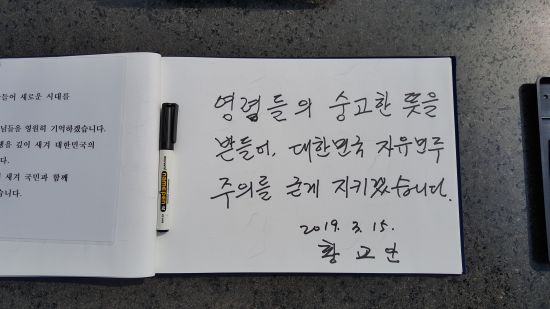 들어 새로운 시대를
님들을 영원히 기억하겠습니다.
생을 깊이 새겨 대한민국의
다.
새겨 국민과 함께
습니다.
영령들의 숭고한 뜻을
받들어, 대한민국 자유민주
주의를 굳게 지키겠습니다.
2019. 3. 15.
황 교 안